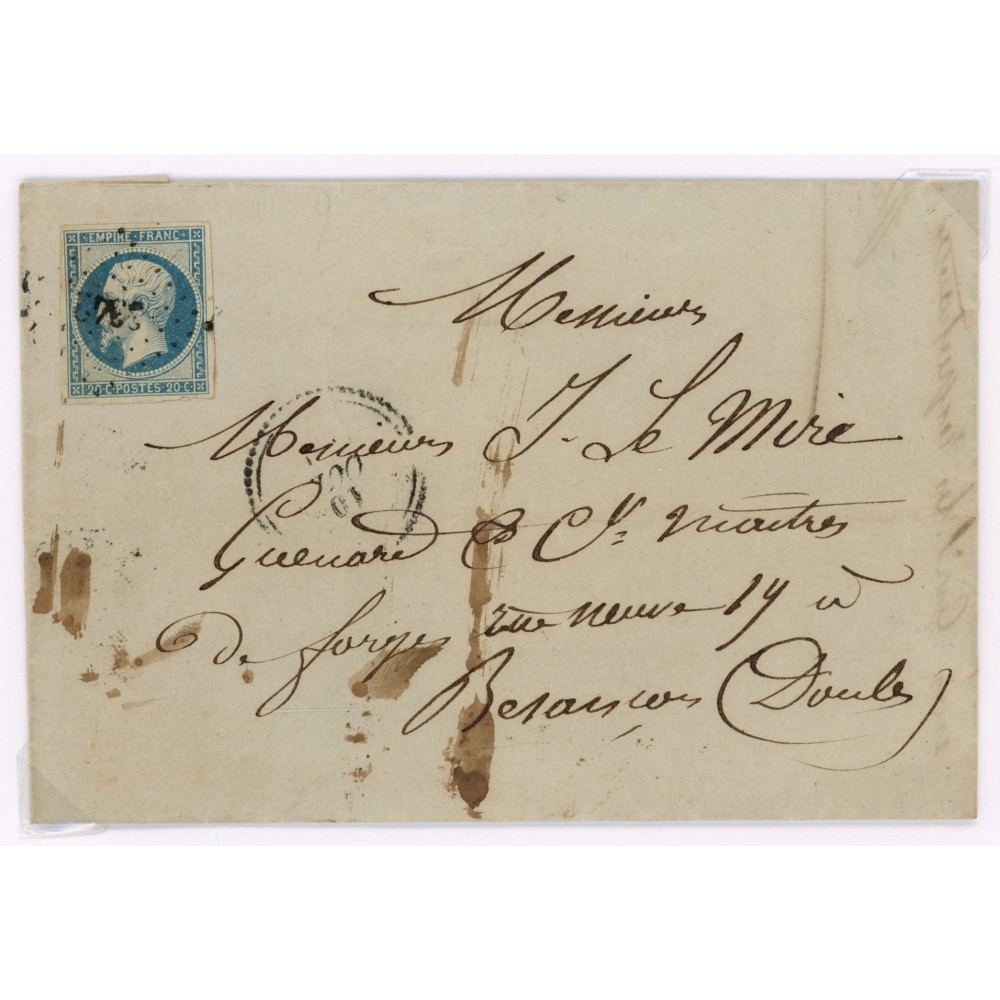 EMPIRE · FRANC ·
20 · C · POSTES · 20 · C ·
Messieurs
Messieurs J. Le Mire
Guenard & Cie maîtres
de forges rue neuve 19 à
Besançon (Doubs)
OCT
10